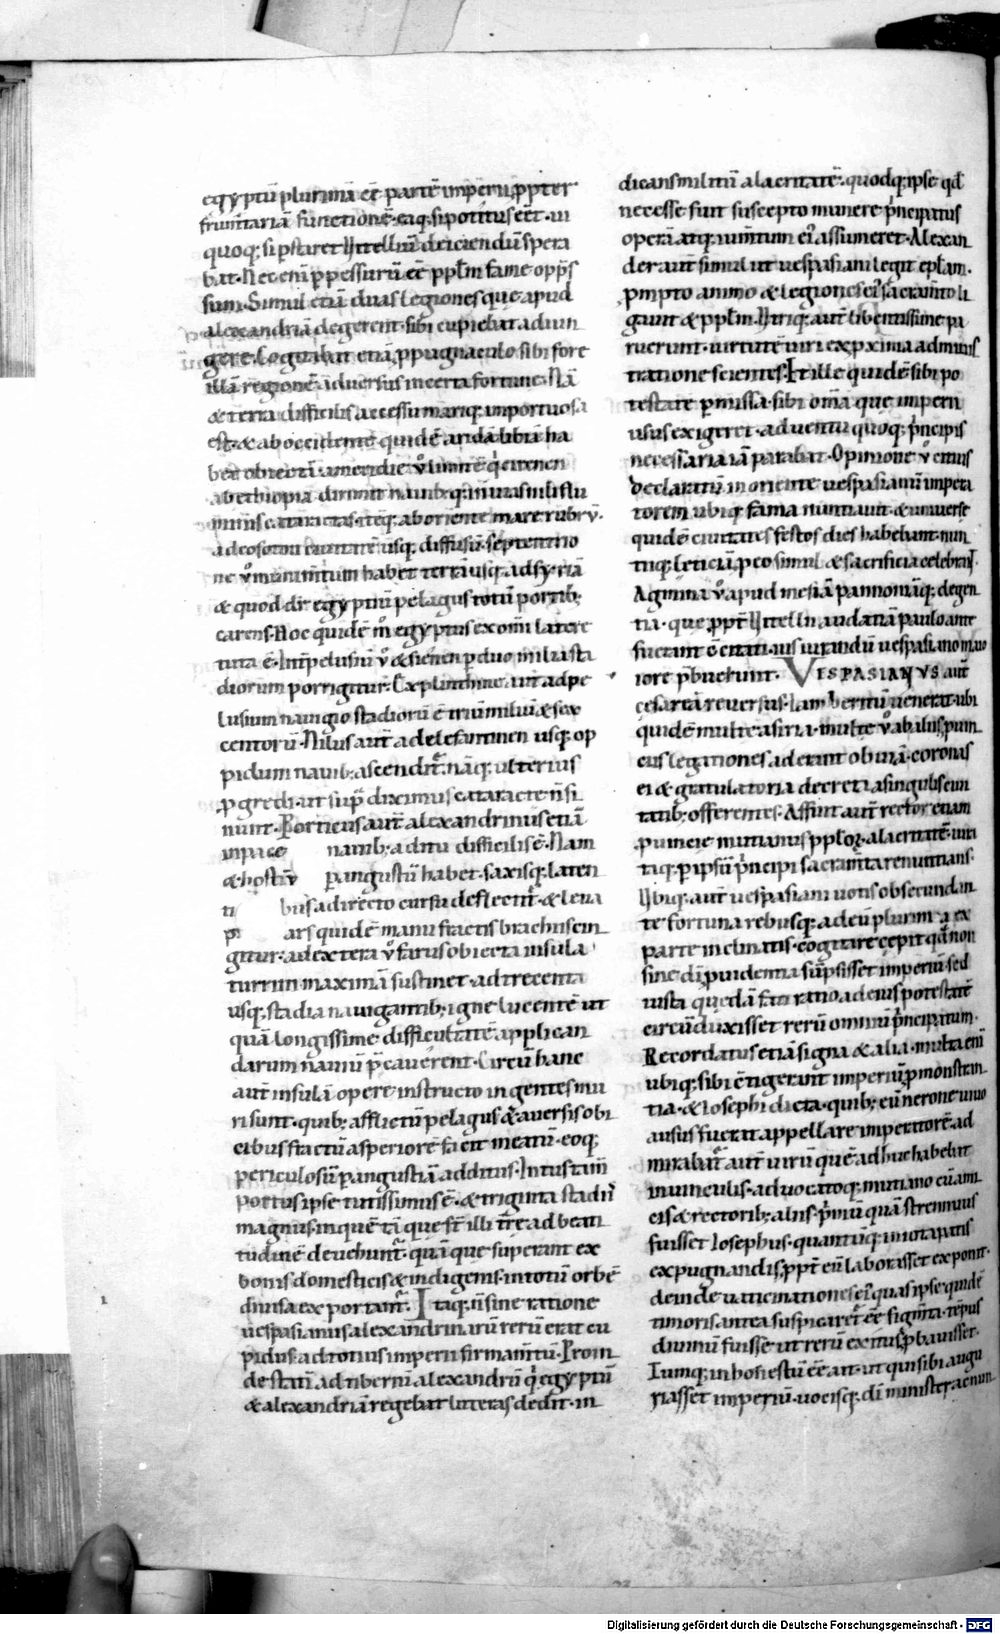 egyptū plurimā eē partē imperii ꝓpter
frumtariā functionē. eaq; si potitus eēt. in
quoq; si pstaret Vitelliū deiciendū spera
bat. Nec enī ꝑpessurū eē pplm̄ fame opp̄s
sum. Simul etiā duas legiones que apud
alexandriā degerent. sibi cupiebat adiun
gere. Cogitabat etiā ꝓpugnaculo sibi fore
illā regionē. adversus incerta fortune. Nā
& terra difficilis accessu mariq; importuosa
est. & ab occidente quidē arida libia ha
bet obiectā. a meridie v̊ limitē qⁱ sienen
ab ethiopia dirimit navib;q; invias milistu
minis cataractas. itēq; ab oriente mare rubrv̄.
ad coson civitatē usq; diffusū. septentrio
ne v̊ munimtum habet terrā usq; ad syriā
& quod dr̄ egyptiū pelagus totū portib;
carens. Hoc quidē m̊ egyptus ex omī latere
tuta ē. Int̄ pelusiū v̊ & sienen ꝑ duo milia sta
diorum porrigitur. Ex plinthine aut ad pe
lusium navigio stadiorū ē triū miliū & sex
centorū. Nilus aut̄ ad elefantinen usq; op
pidum navib; ascendit̄. nāq; ulterius
ꝓgredi. ut sup̄ diximus cataracte n̄ si
nunt. Portus aut̄ alexandrinus etiā
in pace navib; aditu difficilis ē. Nam
& hostiū ꝑangustū habet. saxisq; laten
ti bus a directo cursu deflectit̄. & leva
p ars quidē manu fractis brachiis cin
gitur. a dextera v̊ farus obiecta insula
turrim maximā sustinet. ad trecenta
usq; stadia navigantib; igne lucentē ut
quā longissime difficultatē applican
darum naviū p̄caverent. Circū hanc
aut̄ insulā opere instructo ingentes mu
ri sunt. quib; afflictū pelagus & aversis obi
cibus fractū asperiorē facit meatū. eoq;
periculosū ꝑangustiā additus. Intus tam̄
portus ipse tutissimus ē. & triginta stadiis
magnus. in quē tā que st̄ illi t̄re ad beati
tudinē devehunt̄. quā que superant ex
bonis domesticis & indigenis. in totū orbē
divisa exportant̄. Itaq; n̄ sine ratione
vespasianus alexandrinarū rerū erat cu
pidus. ad totius imperii firmam̄tū. Proin
de statī ad tiberiū alexandrū qⁱ egyptū
& alexandriā regebat litteras dedit. in
dicans militū alacritatē. quodq; ipse qd̄
necesse fuit suscepto munere p̄ncipatus
operā atq; iumtum eī assumeret. Alexan
der aut̄ simul ut vespasiani legit epl̄am.
ꝓmpto animo & legiones eī sacram̄to li
gavit & pplm̄. Vtriq; aut̄ libentissime pa
ruerunt. virtutē viri ex ꝓxima adminis
tratione scientes. It ille quidē sibi po
testate ꝑmissa. sibi om̄a que imperii
usus exigeret. adventu quoq; p̄ncipis
necessaria iā parabat. Opinione v̊ citius
declaratū in oriente vespasianū impera
torem ubiq; fama nuntiavit. & universe
quidē civitates festos dies habebant. nun
tiiq; leticiā ꝓ eo simul & sacrificia celebrant.
Agmina v̊ apud mesiā pannoniāq; degen
tia. que ꝓpt̄ Vitellii audatiā paulo ante
fuerant cōcitati. ius iurandū vespasiano ma
iore p̄buerunt. VESPASIANVS aut̄
cesarea reversus. iam beritū venerat. ubi
quidē multe a siria. multe v̊ ab aliis ꝓvin
ciis legationes aderant obviā. coronas
ei & gratulatoria decreta singulis civi
tatib; offerentes. Affuit aut̄ rector etiam
ꝓvincie mutianus pploꝝ. alacritatē. nun
tiāq; ꝑ ipsū p̄ncipi sacram̄ta renuntians.
Vbiq; aut̄ vespasiani votis obsecundan
te fortuna rebusq; ad eū plurima ex
parte inclinatis. cogitare cepit qd̄ non
sine dī ꝓvidentia sūpsisset imperiū. sed
iusta quedā fati ratio ad eius potestatē
circūduxisset rerū omniū p̄ncipatum.
Recordatus etiā signa & alia. multa enī
ubiq; sibi cōtigerunt imperiū ꝓmonstran
tia. & iosephi dicta. quib; eū nerone vivo
ausus fuerat appellare imperatorē. ad
mirabat̄ aut̄ virū quē adhuc habebat
in vinculis. advocatoq; mutiano cū ami
cis & rectorib; aliis. p̄mū quā strennuus
fuisset Iosephus. quantūq; in iotapatis
expugnandis ꝓpt̄ eū laborasset exponit.
deinde vaticinationes eī quas ipse quidē
timoris antea suspicaret̄ eē figm̄ta. tēpus
divinū fuisse. ut rerū exitus ꝓbavisset.
Iamq; inhonestū eē ait. ut qui sibi augu
riasset imperiū. vocisq; dī minister. ac nunc